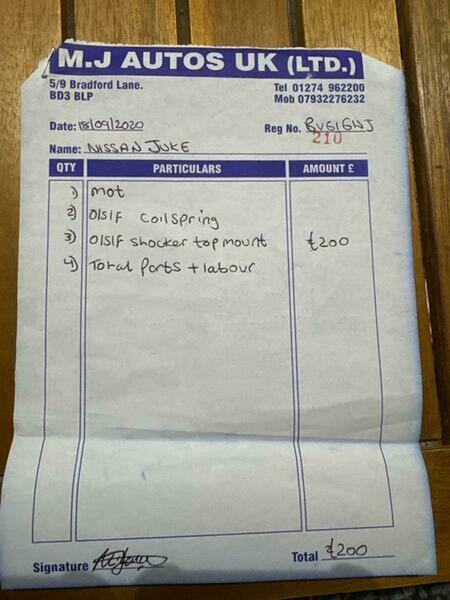 M.J AUTOS UK (LTD.)
5/9 Bradford Lane. Tel 01274 962200
BD3 8LP Mob 07932276232
Date: 18/09/2020 Reg No. BV61GWJ
210
Name: NISSAN JUKE
QTY PARTICULARS AMOUNT £
1) mot
2) O/S/F coil spring
3) O/S/F shocker top mount £200
4) Total parts + labour
Signature Total £200